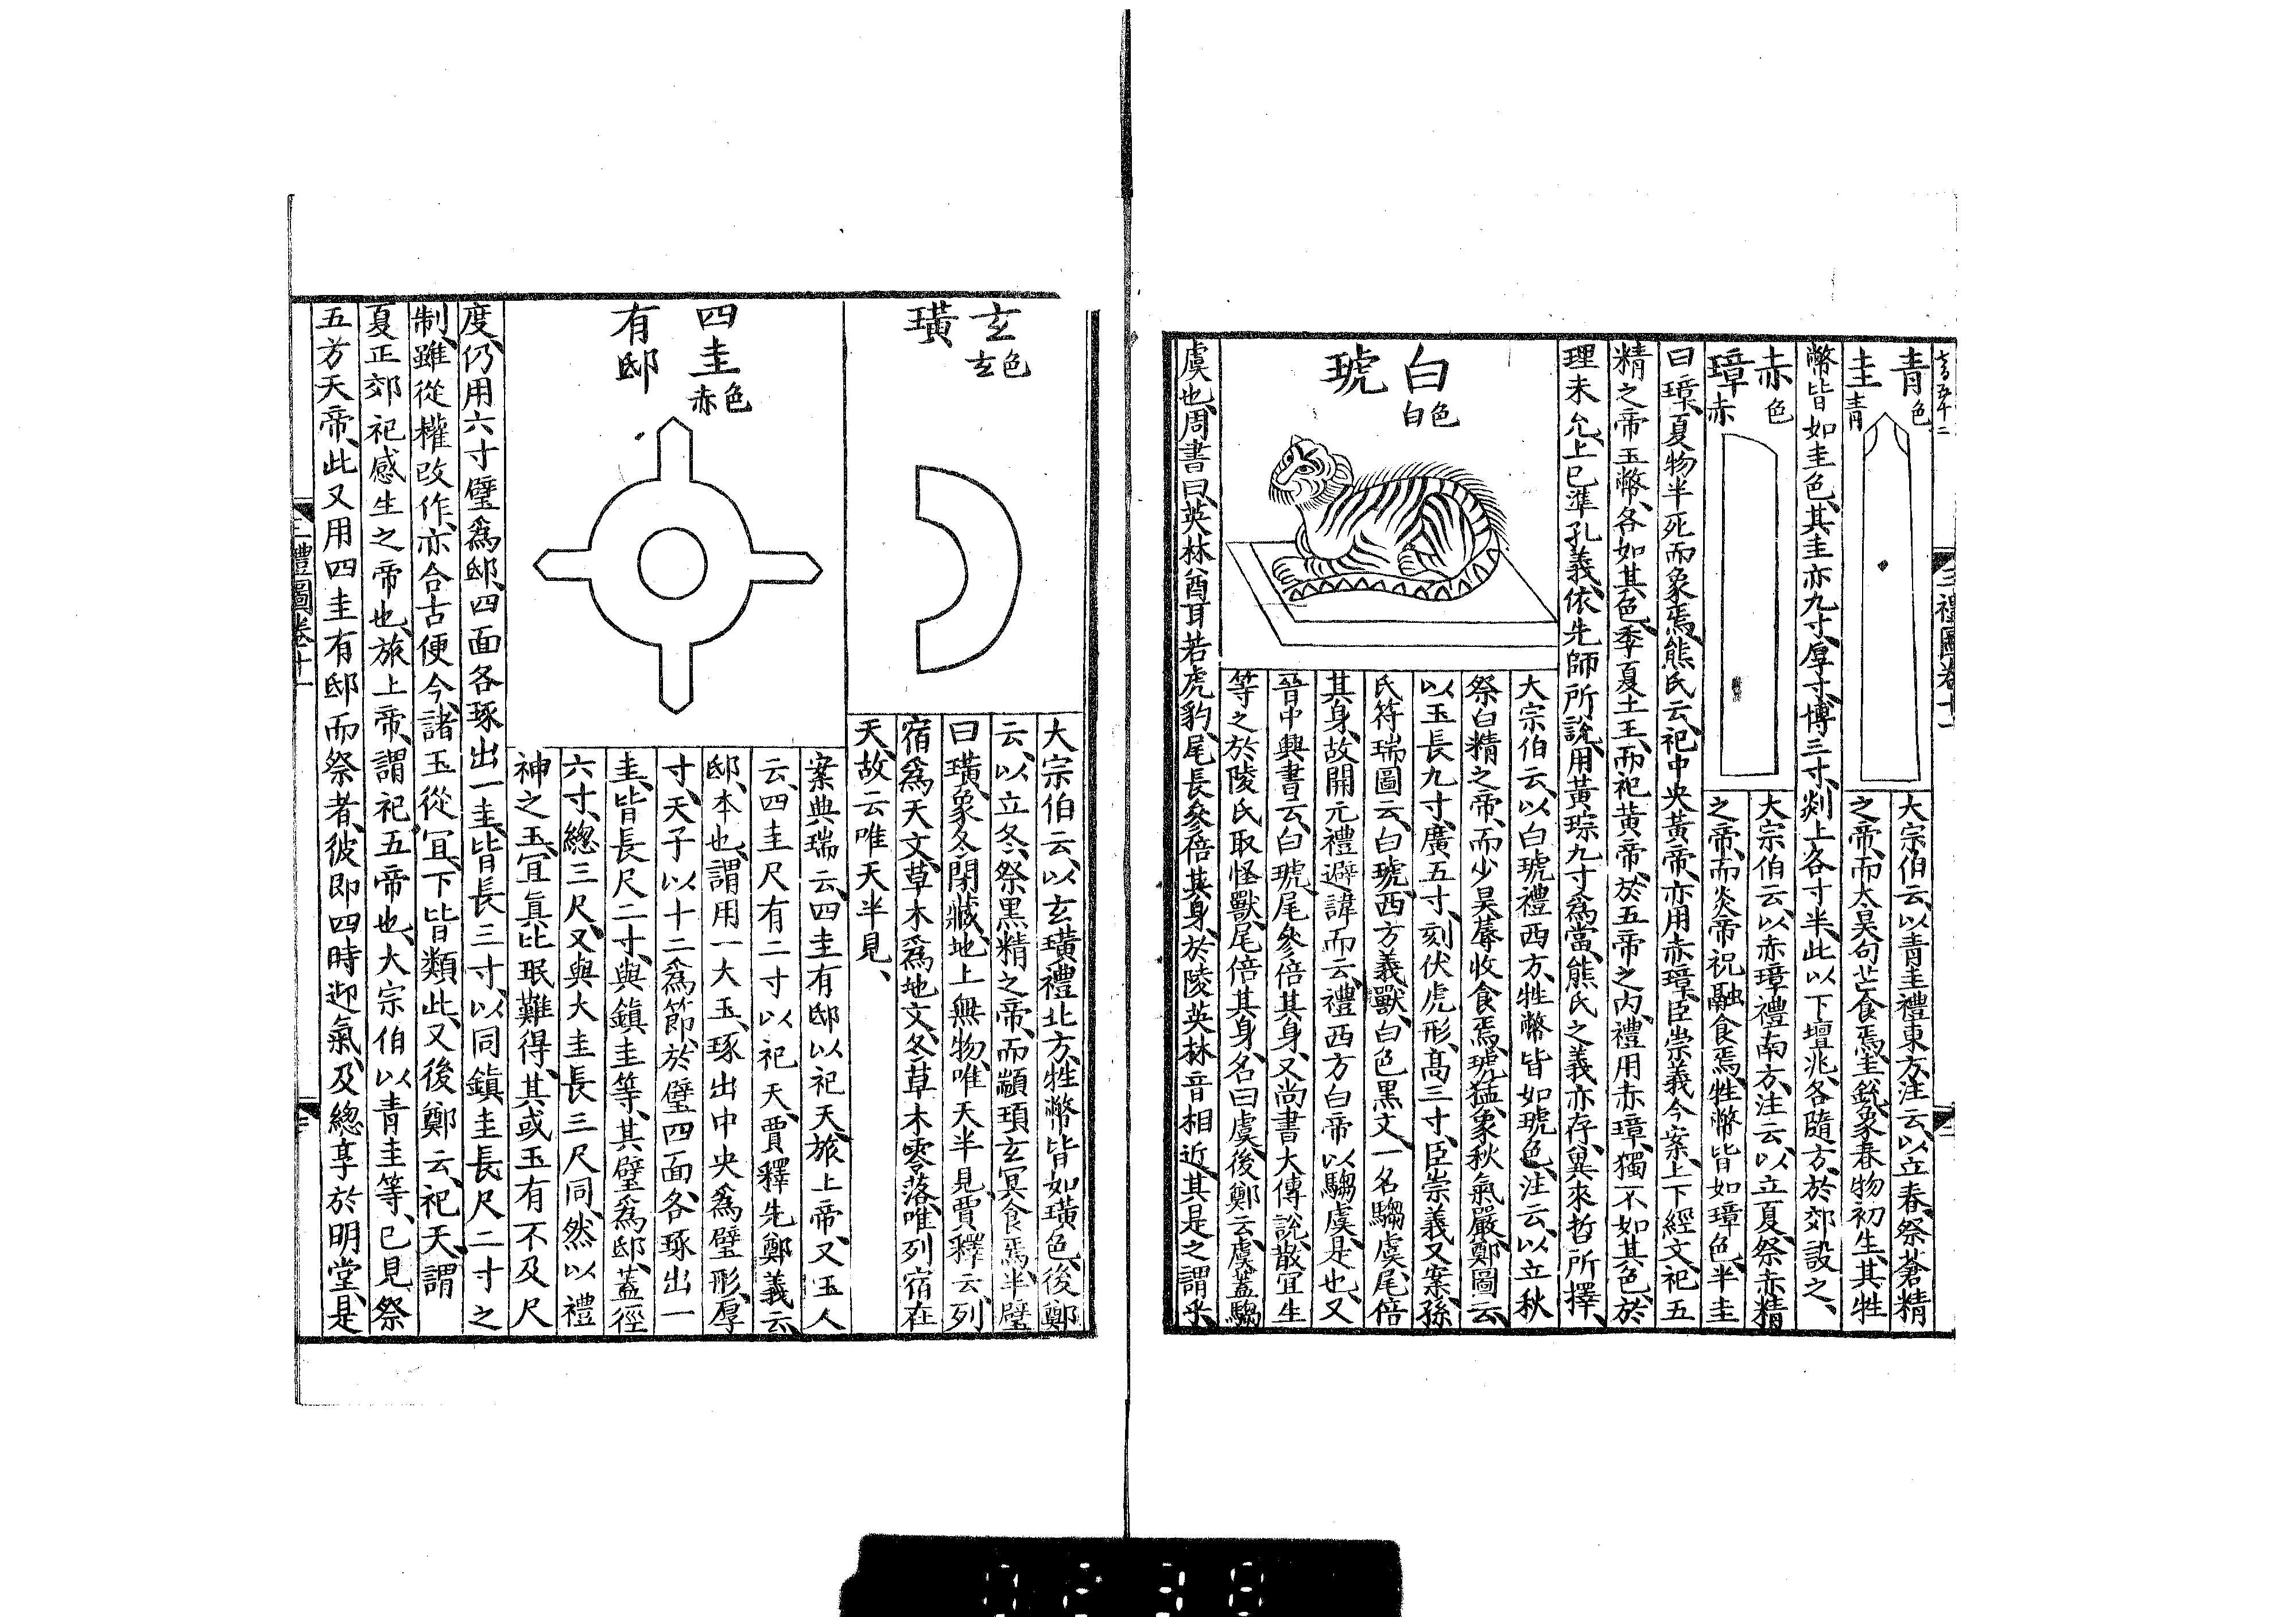 三禮圖卷十一
青圭 色青
大宗伯云、以青圭禮東方、注云、以立春、祭蒼精
之帝、而太昊句芒食焉、圭銳、象春物初生、其牲
幣皆如圭色、其圭亦九寸、厚寸、博三寸、剡上各寸半、此以下壇兆、各隨方、於郊設之、
赤璋 色赤
大宗伯云、以赤璋禮南方、注云、以立夏、祭赤精
之帝、而炎帝祝融食焉、牲幣皆如璋色、半圭
曰璋、夏物半死而象焉、熊氏云、祀中央黃帝、亦用赤璋、臣崇義今案、上下經文、祀五
精之帝玉幣、各如其色、季夏土王、而祀黃帝、於五帝之內、禮用赤璋、獨不如其色、於
理未允、上已準孔義、依先師所說、用黃琮九寸為當、熊氏之義亦存、異來哲所擇、
白琥 白色
大宗伯云、以白琥禮西方、牲幣皆如琥色、注云、以立秋
祭白精之帝、而少昊蓐收食焉、琥猛、象秋氣嚴、鄭圖云、
以玉長九寸、廣五寸、刻伏虎形、高三寸、臣崇義又案、孫
氏符瑞圖云、白琥、西方義獸、白色黑文、一名騶虞、尾倍
其身、故開元禮避諱而云、禮西方白帝以騶虞、是也、又
晉中興書云、白琥、尾參倍其身、又尚書大傳說、散宜生
等之於陵氏取怪獸、尾倍其身、名曰虞、後鄭云、虞蓋騶
虞也、周書曰、英林酋耳若虎豹、尾長參倍其身、於陵英林音相近、其是之謂乎、
玄璜 玄色
大宗伯云、以玄璜禮北方、牲幣皆如璜色、後鄭
云、以立冬、祭黑精之帝、而顓頊玄冥食焉、半璧
曰璜、象冬閉藏、地上無物、唯天半見、賈釋云、列
宿為天文、草木為地文、冬草木零落、唯列宿在
天、故云唯天半見、
四圭有邸 赤色
案典瑞云、四圭有邸以祀天、旅上帝、又玉人
云、四圭尺有二寸以祀天、賈釋先鄭義云、
邸、本也、謂用一大玉、琢出中央為璧形、厚
寸、天子以十二為節、於璧四面、各琢出一
圭、皆長尺二寸、與鎮圭等、其璧為邸、蓋徑
六寸、總三尺、又與大圭長三尺同、然以禮
神之玉、宜真比珉難得、其或玉有不及尺
度、仍用六寸璧為邸、四面各琢出一圭、皆長三寸、以同鎮圭長尺二寸之
制、雖從權改作、亦合古便今、諸玉從宜、下皆類此、又後鄭云、祀天、謂
夏正郊祀感生之帝也、旅上帝、謂祀五帝也、大宗伯以青圭等、已見祭
五方天帝、此又用四圭有邸而祭者、彼即四時迎氣、及總享於明堂、是
三禮圖卷十一